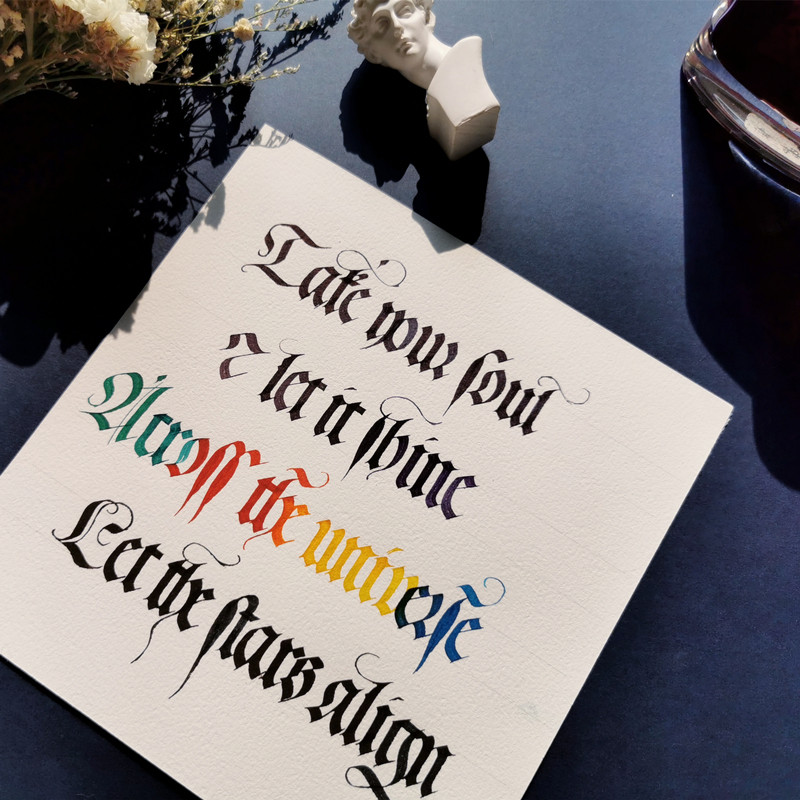 Take your soul
& let it shine
Across the universe
Let the stars align